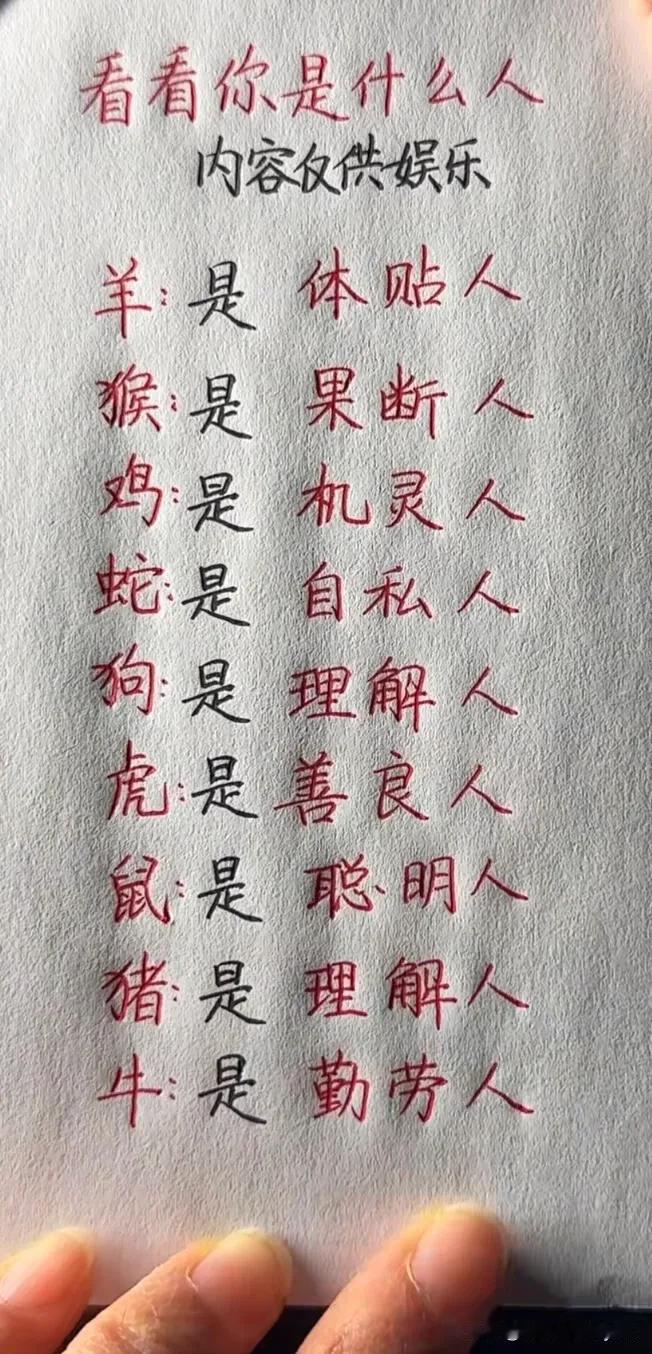 看看你是什么人
内容仅供娱乐
羊:是 体贴人
猴:是 果断人
鸡:是 机灵人
蛇:是 自私人
狗:是 理解人
虎:是 善良人
鼠:是 聪明人
猪:是 理解人
牛:是 勤劳人